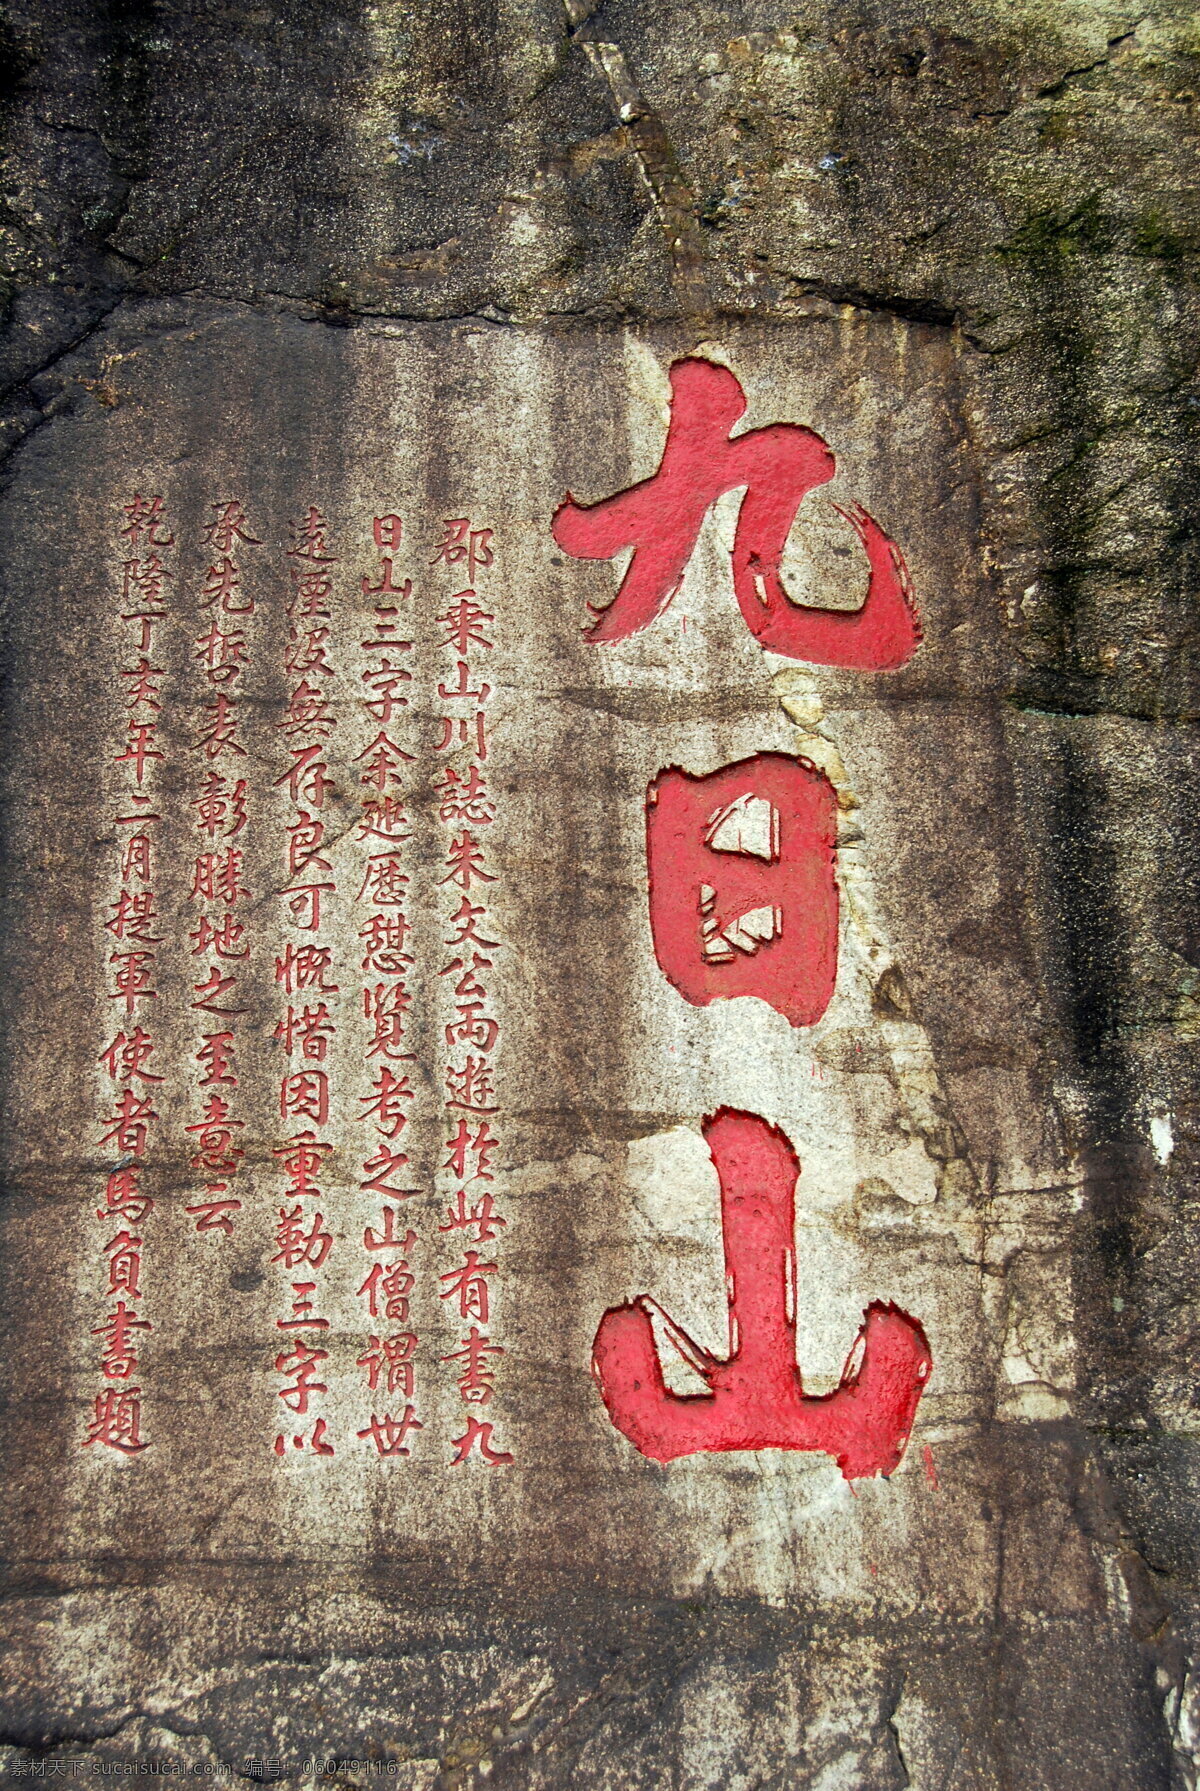 九日山
郡乗山川誌朱文公两遊於此有書九
日山三字余廵歴憇覽考之山僧謂世
遠湮没無存良可慨惜因重勒三字以
承先哲表彰勝地之至意云
乾隆丁亥年二月提軍使者馬負書題
素材天下 sucaisucai.com 编号：06049116